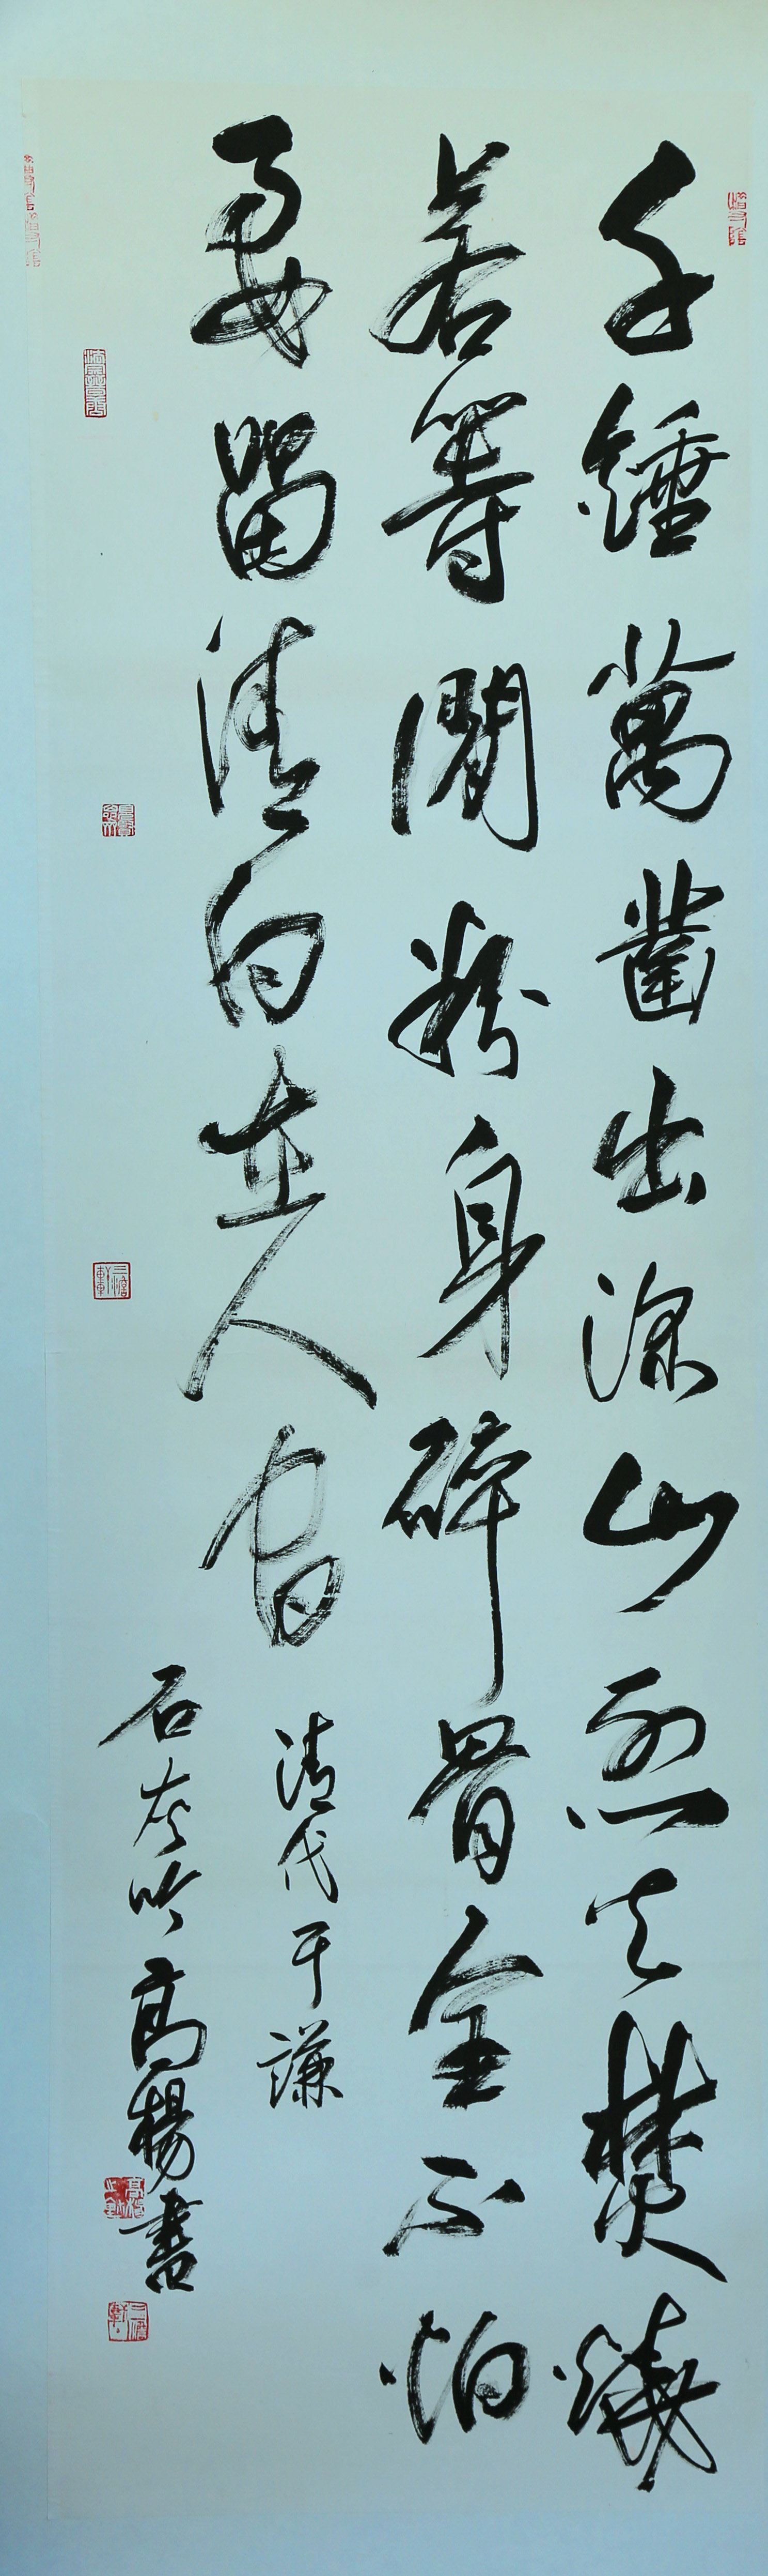 千錘萬鑿出深山烈火焚燒
若等閒粉身碎骨全不怕
要留清白在人間
清代于謙
石灰吟高楊書